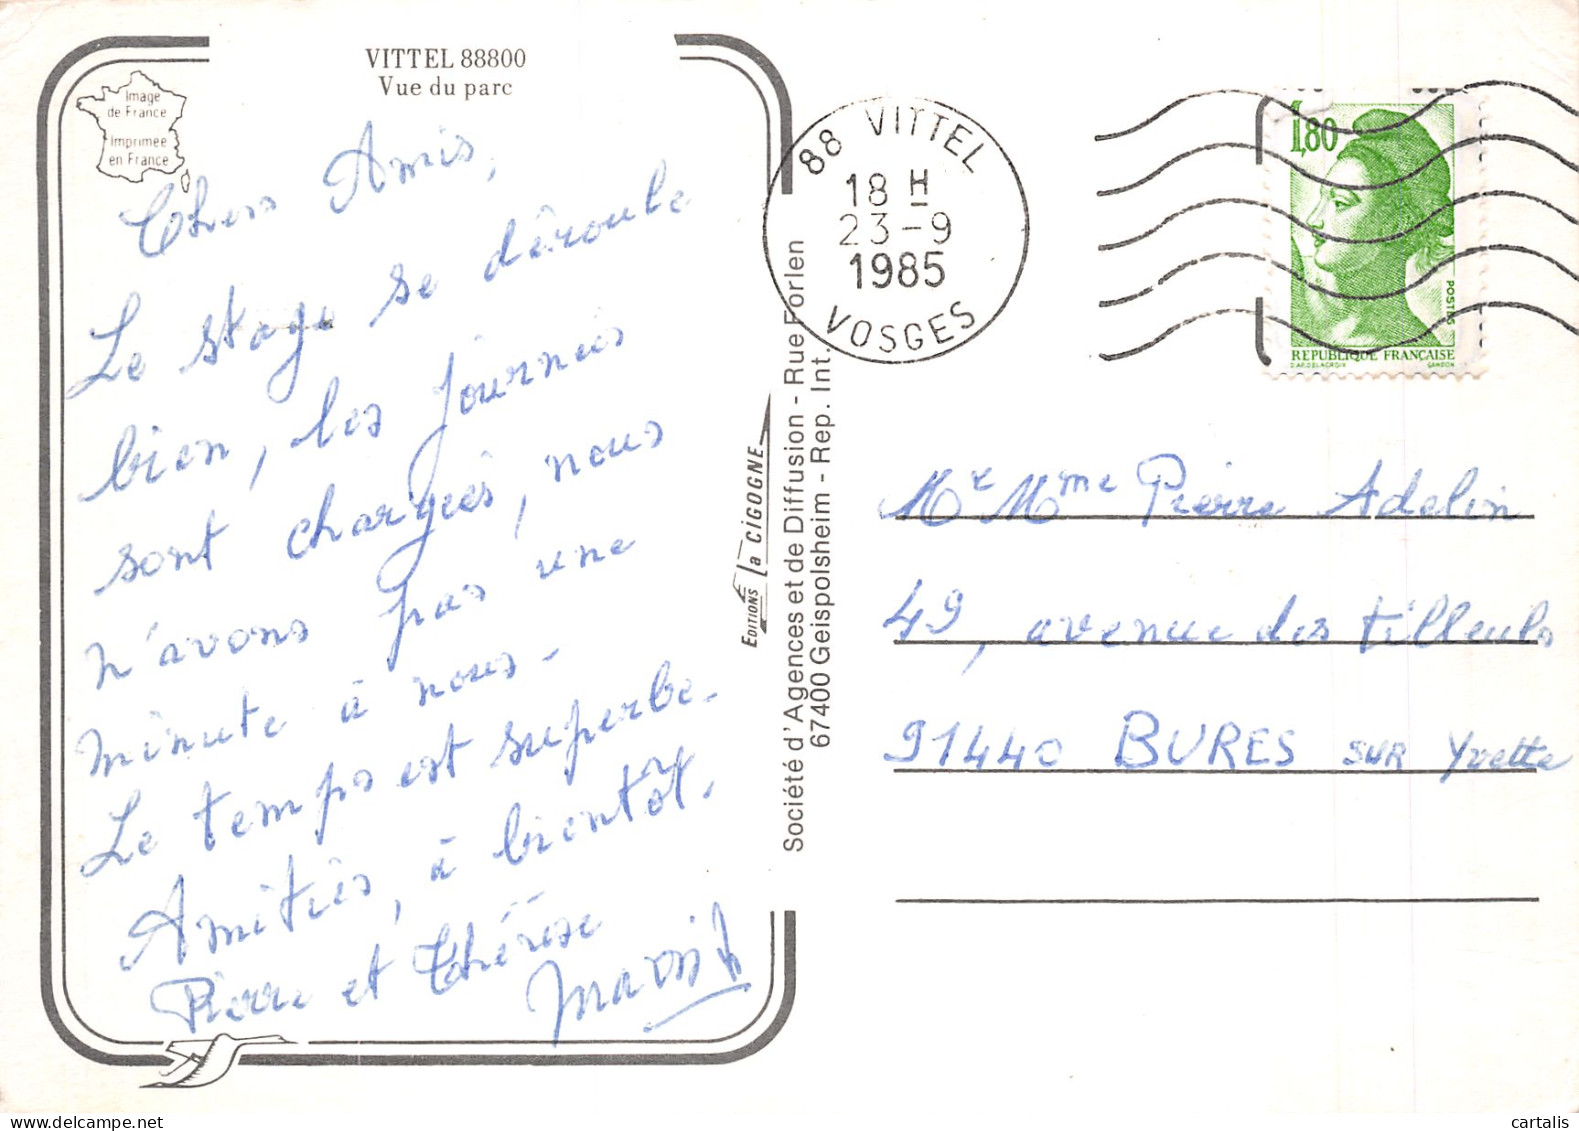 VITTEL 88800
Vue du parc
Image
de France
Imprimée
en France
Chers Amis,
Le stage se déroule
bien, les journées
sont chargées, nous
n'avons pas une
minute à nous.
Le temps est superbe.
Amitiés, à bientôt.
Pierre et Thérèse
EDITIONS La CIGOGNE
Société d'Agences et de Diffusion - Rue Forlen
67400 Geispolsheim - Rep. Int.
88 VITTEL
18 H
23-9
1985
VOSGES
1,80
POSTES
REPUBLIQUE FRANÇAISE
D'AP. DELACROIX GANDON
Mr Mme Pierre Adelin
49, avenue des tilleuls
91440 BURES SUR Yvette
cartalis